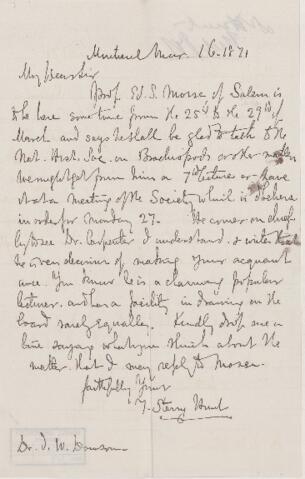 Montreal Mar. 16. 1871
My Dear Sir
Prof. Ed. S. Morse of Salem is
to be here sometime from the 25th to the 29th of
March and says he shall be glad to talk to the
Nat. Hist. Soc. on Brachiopods or other matters
we might get from him a 7th lecture or have
a meeting of the Society which is
in order for Monday 27. He comes on chief-
ly to see Dr. Carpenter I understand, & writes that
he is even desirous of making your acquaint
ance. You know he is a charming popular
lecturer, and has a facility in drawing on the
board rarely equalled. Kindly drop me a
line saying what you think about the
matter, that I may reply to Morse.
faithfully Yours
T. Sterry Hunt
Dr. J. W. Dawson